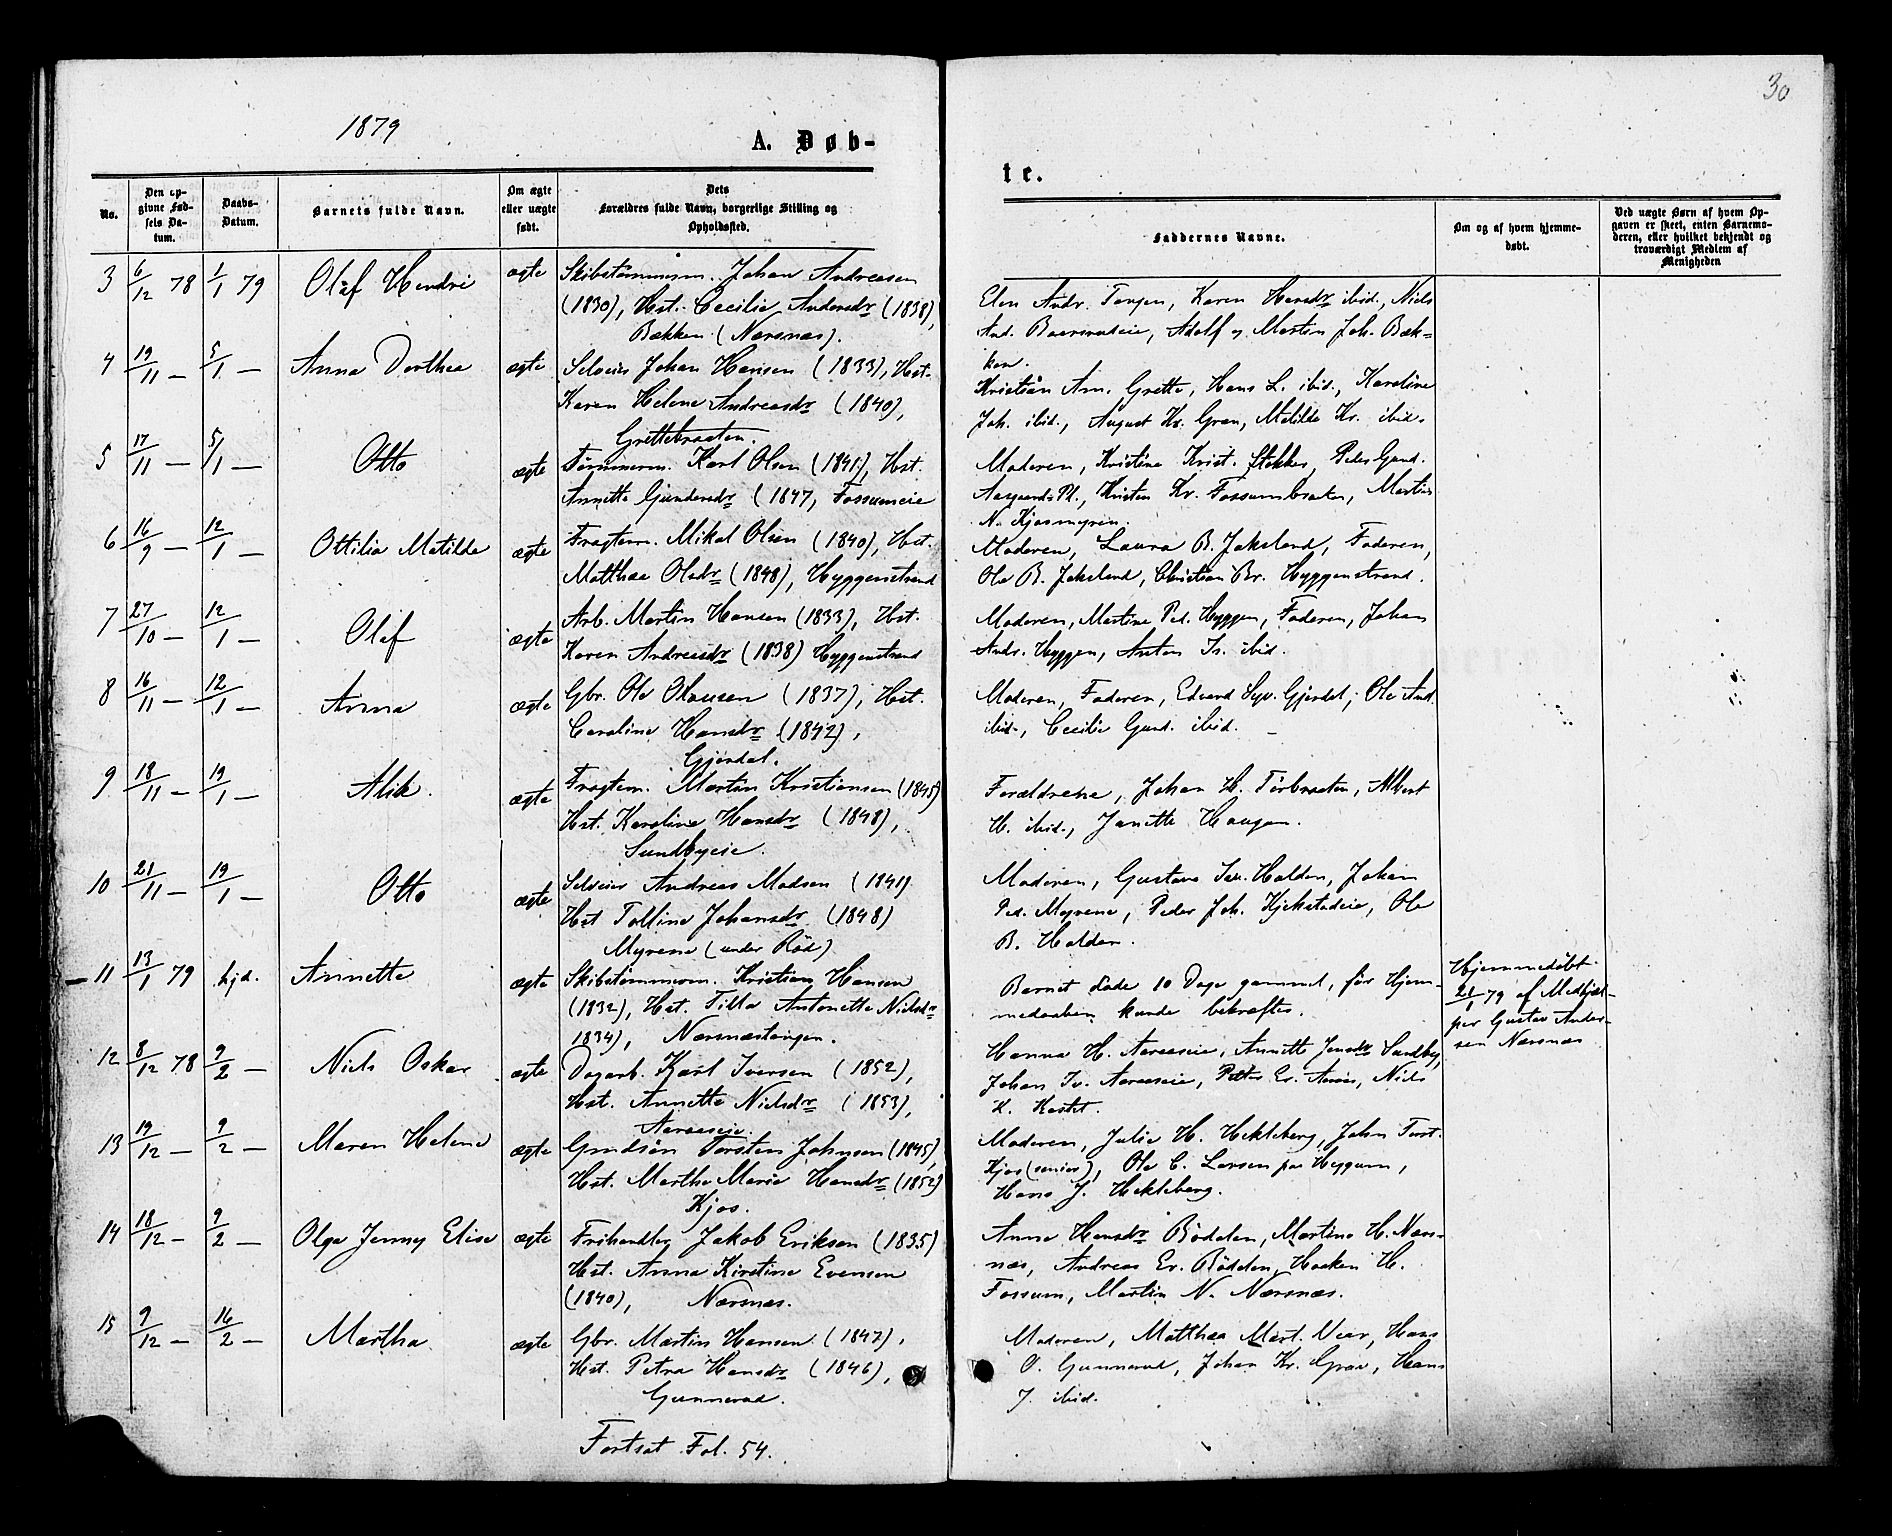 30
1879
A. Døb-
te.
No.
Den op-
givne Fød-
sels Da-
tum.
Daabs-
Datum.
Barnets fulde Navn.
Om ægte
eller uægte
født.
Dets
Forældres fulde Navn, borgerlige Stilling og
Opholdssted.
Faddernes Navne.
Om og af hvem hjemme-
døbt.
Ved uægte Børn af hvem Op-
gaven er skeet, enten Barnemo-
deren, eller hvilket bekjendt og
troværdigt Medlem af
Menigheden
3 6/12 78 1/1 79 Olaf Hendri ægte Skibstømmerm. Johan Andreasen
(1830), Hst. Cecilie Andersdr (1838),
Bakken (Nærsnæs).
Elen Andr. Tangen, Karen Hansdr ibid., Niels
And. Adolf og Martin Joh. Bak-
ken.
4 19/11 — 5/1 — Anna Dorthea ægte Selveier Johan Hansen (1833), Hst.
Karen Helene Andreasdr (1840),
Grettebraaten.
Kristian Arn. Grette, Hans L. ibid., Karoline
Joh. ibid., August Kr. Gran, Matilde Kr. ibid.
5 17/11 — 5/1 — Otto ægte Tømmerm. Karl Olsen (1841), Hst.
Annette Gundersdr (1847, Fossumeie
Moderen, Kristine Krist. Stokker, Peder Gund.
Aagaards Pl., Kristen Kr. Fossumbraaten, Martin
N. Kjosmyren.
6 16/9 — 12/1 — Ottilia Matilde ægte Fragtem. Mikal Olsen (1840), Hst.
Matthea Olsdr (1848), Hyggenstrand
Moderen, Laura B. Jaksland, Faderen,
Ole B. Jaksland, Christian Br. Hyggenstrand.
7 27/10 — 12/1 — Olaf ægte Arb. Martin Hansen (1833), Hst.
Karen Andreasdr (1838) Hyggenstrand
Moderen, Martine Ped. Hyggen, Faderen, Johan
Andr. Hyggen, Anton Is. ibid.
8 16/11 — 12/1 — Anna ægte Gbr. Ole Olausen (1837), Hst.
Caroline Hansdr (1842),
Gjerdal.
Moderen, Faderen, Edvard Syv. Gjerdal, Ole And.
ibid., Cecilie Gund. ibid. —
9 18/11 — 19/1 — Alik. ægte Fragtem. Martin Kristiansen (1845)
Hst. Karoline Hansdr (1848),
Sundbyeie.
Forældrene, Johan H. Tørbraaten, Albert
H. ibid., Janette Haugen.
10 21/11 — 19/1 — Otto ægte Selveier Andreas Madsen (1841)
Hst Tolline Johansdr (1848)
Myrene (under Rød)
Moderen, Gustava Halden, Johan
Ped. Myrene, Peder Joh. Kjekstadeie, Ole
B. Halden.
— 11 13/1 79 hjd. Annette ægte Skibstømmerm. Kristian Hansen
(1832), Hst. Tilla Antonette Nielsdr
1834), Nærsnæstangen.
Barnet døde 10 Dage gammel, før Hjem-
medaaben kunde bekræftes.
Hjemmedøbt
21/1 79 af Medhjæl-
per Gustav Ander-
sen Nærsnæs
12 8/12 78 9/2 — Niels Oskar ægte Dagarb. Karl Iversen (1852),
Hst. Annette Nielsdr (1853),
Aaraaseie.
Hanna H. Aaraaseie, Annette Jensdr Sundby,
Johan Iv. Aaraaseie, Petter Ev. Niels
K. Kastet.
13 19/12 — 9/2 — Maren Helene ægte Grndsøn Torsten Johnsen (1845),
Hst. Marthe Marie Hansdr (1852)
Kjos.
Moderen, Julie H. Hekleberg, John Torst.
Kjos (senior), Ole C. Larsen paa Hyggum,
Hans J. Hekleberg.
14 18/12 — 9/2 — Olga Jenny Elise ægte Frihandler Jakob Eriksen (1835)
Hst. Anna Kirstine Evensen
(1840), Nærsnæs.
Anne Hansdr Bødden, Martine H. Nærs-
næs, Andreas Ev. Bødden, Haaken H.
Fossum, Martin N. Nærsnæs.
15 9/12 — 16/2 — Martha ægte Gbr. Martin Hansen (1847),
Hst. Petra Hansdr (1846),
Gunnerud.
Moderen, Matthea Mart. Hans
O. Gunnerud, Johan Kr. Grav, Hans
J. ibid.
Fortsat Fol. 54.